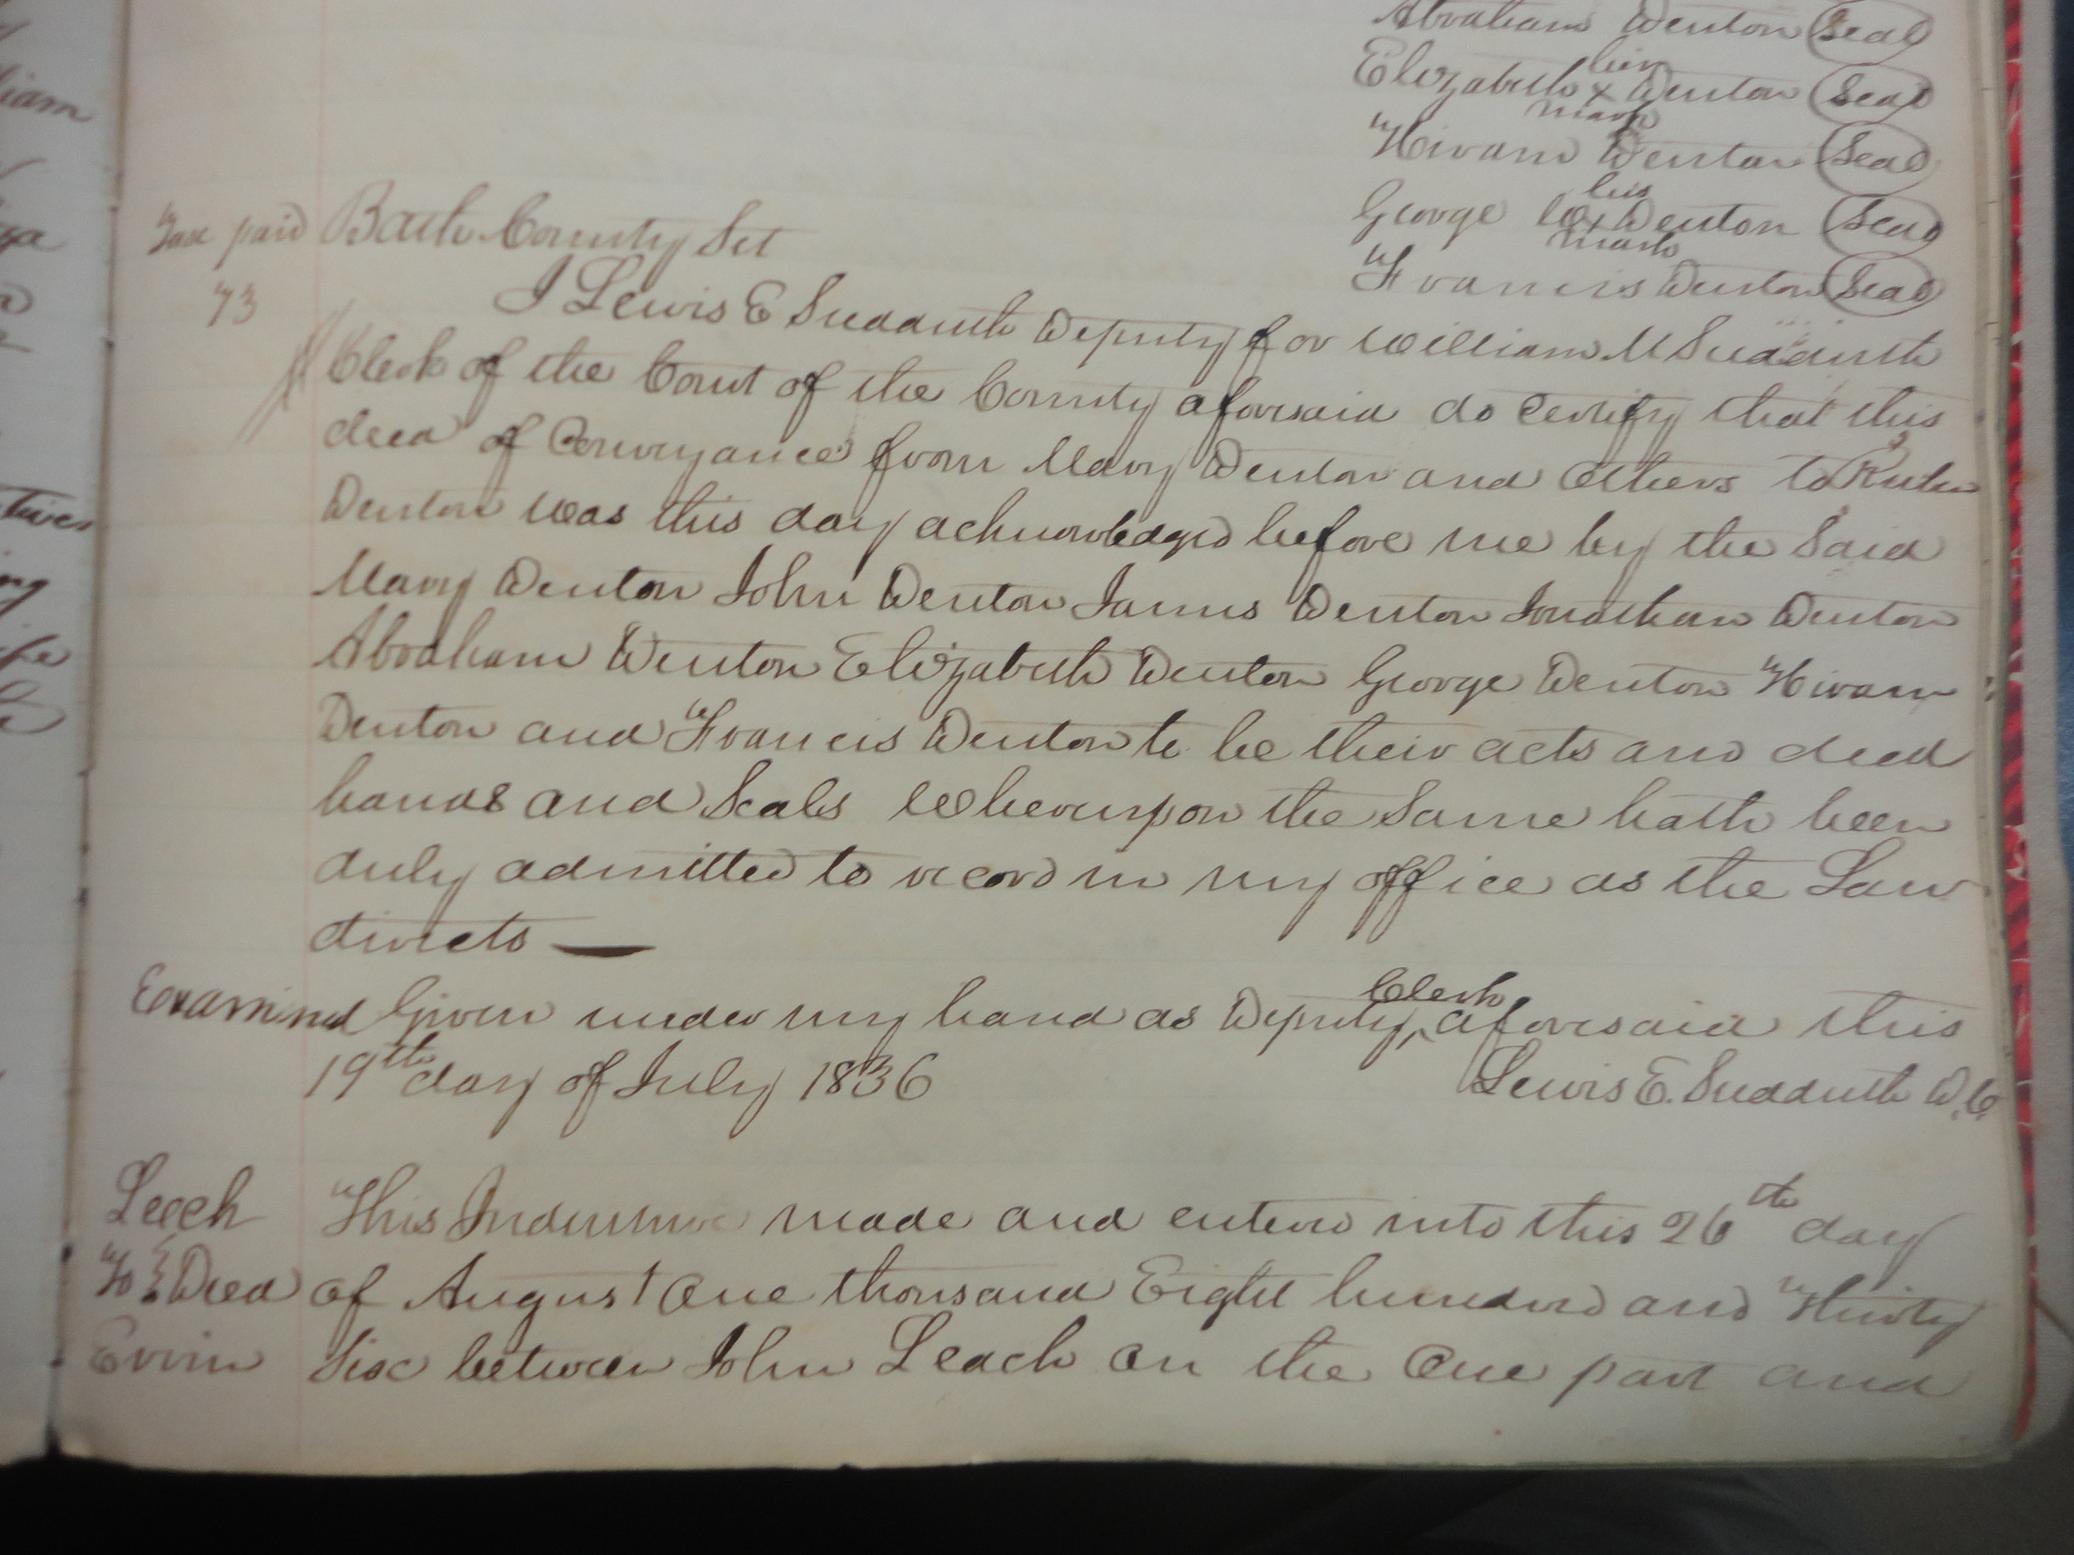 Abraham Denton Seal
her
Elizabeth x Denton Seal
mark
Hiram Denton Seal
his
George W x Denton Seal
mark
Francis Denton Seal
Tax paid Bath County Sct
73
I Lewis E Sudduth Deputy for William M Sudduth
Clerk of the Court of the County aforesaid do Certify that this
deed of Conveyance from Mary Denton and Others to
Denton was this day acknowledged before me by the Said
Mary Denton John Denton James Denton Jonathan Denton
Abraham Denton Elizabeth Denton George Denton Hiram
Denton and Francis Denton to be their acts and deed
hands and Seals Whereupon the Same hath been
duly admitted to record in my office as the Law
directs —
Examined Given under my hand as Deputy Clerk aforesaid this
19th day of July 1836 Lewis E. Sudduth D.C.
Leech This Indenture made and entered into this 26th day
To } Deed of August One thousand Eight hundred and Thirty
Ervin Six between John Leach on the One part and